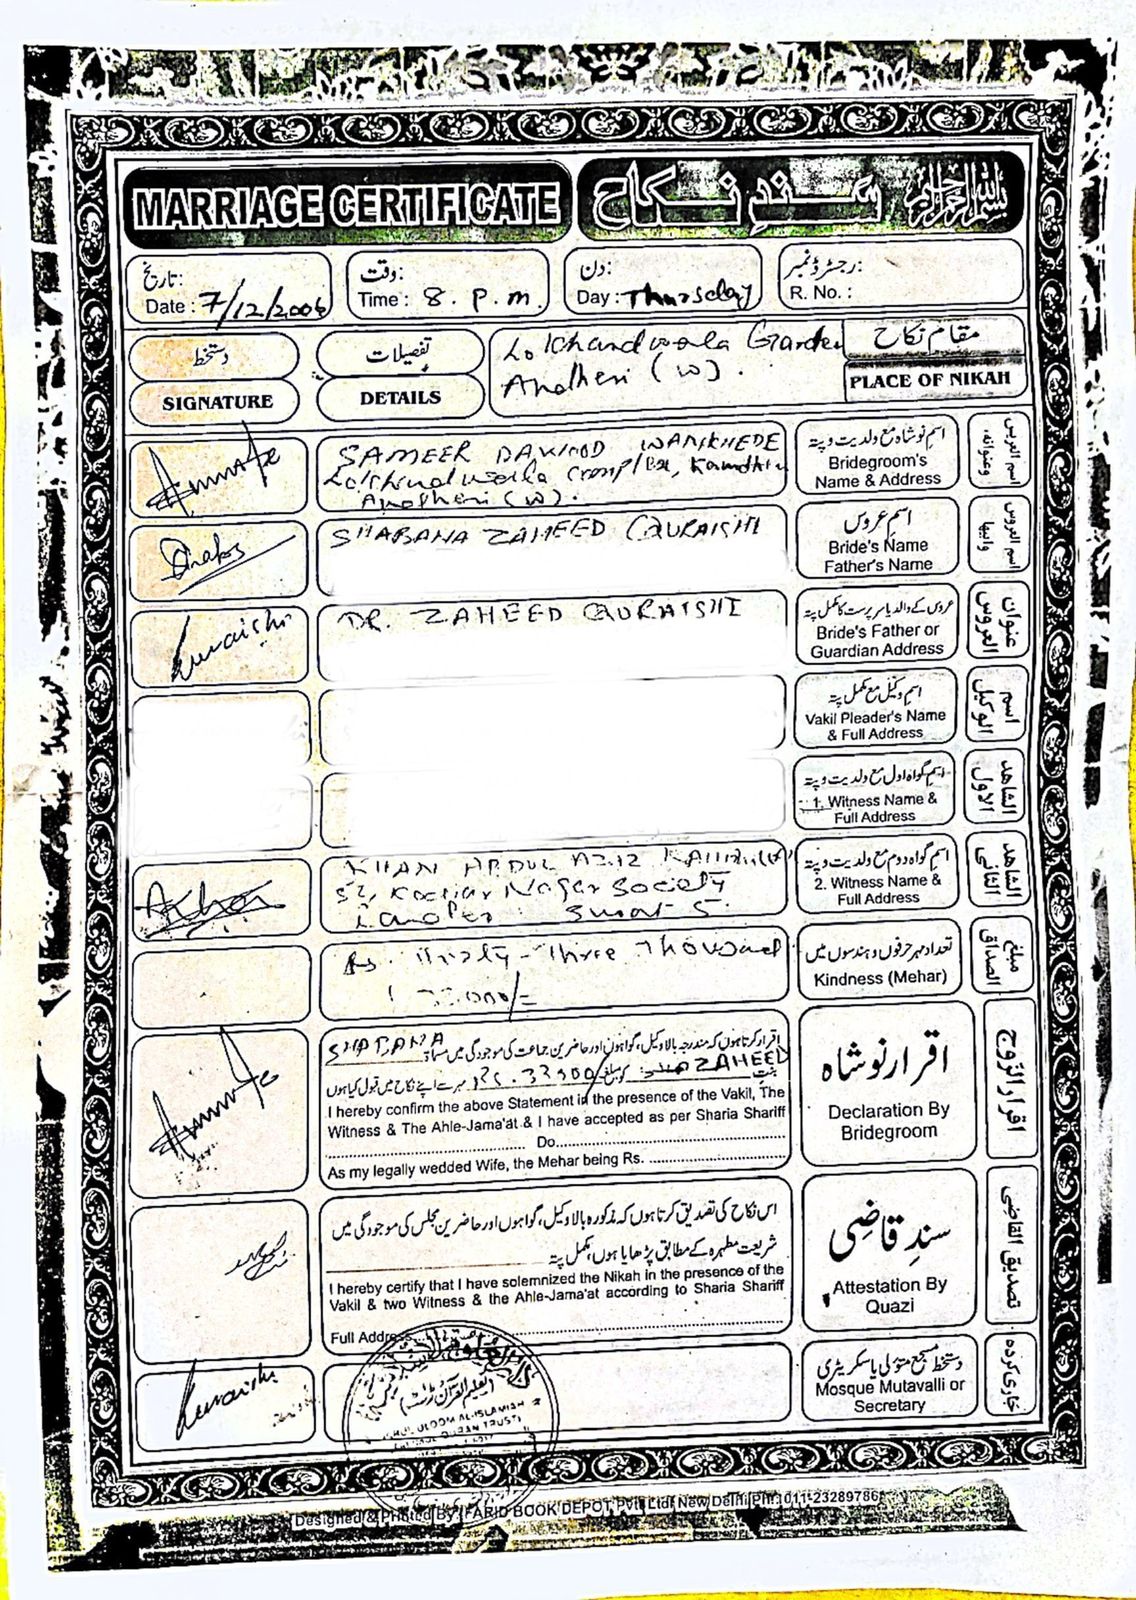 MARRIAGE CERTIFICATE
سندِ نکاح
بسم الله الرحمن الرحيم
تاریخ:
Date : 7/12/2006
وقت:
Time : 8. P.m.
دن:
Day : Thursday
رجسٹرڈ نمبر:
R. No. :
دستخط
SIGNATURE
تفصیلات
DETAILS
Lokhandwala Garden
Andheri (W).
مقام نکاح
PLACE OF NIKAH
SAMEER DAWOOD WANKHEDE
Lokhandwala Complex,
Andheri (W).
اسم نوشاہ مع ولدیت و پتہ
Bridegroom's
Name & Address
SHABANA ZAHEED QURAISHI
اسم عروس
Bride's Name
Father's Name
Quraishi
DR. ZAHEED QURAISHI
عروس کے والد یا سرپرست کا مکمل پتہ
Bride's Father or
Guardian Address
عنوان العروس
اسم وکیل مع مکمل پتہ
Vakil Pleader's Name
& Full Address
اسم الوکیل
اسم گواہ اول مع ولدیت و پتہ
1. Witness Name &
Full Address
الشاهد الاول
KHAN ABDUL AZIZ
Nagar Society
Surat 5.
اسم گواہ دوم مع ولدیت و پتہ
2. Witness Name &
Full Address
الشاهد الثانی
Rs. Thirty-Three Thousand
33,000/=
تعداد مہر حرفوں و ہندسوں میں
Kindness (Mehar)
مبلغ الصداق
اقرار کرتا ہوں کہ مندرجہ بالا وکیل، گواہوں اور حاضرین جماعت کی موجودگی میں مسماۃ SHABANA
بنت ZAHEED کو مبلغ Rs. 33000/ مہر سے اپنے نکاح میں قبول کیا ہوں
I hereby confirm the above Statement in the presence of the Vakil, The
Witness & The Ahle-Jama'at & I have accepted as per Sharia Shariff
Do
As my legally wedded Wife, the Mehar being Rs.
اقرار نوشاہ
Declaration By
Bridegroom
اقرار الزوج
اس نکاح کی تصدیق کرتا ہوں کہ مذکورہ بالا وکیل، گواہوں اور حاضرین مجلس کی موجودگی میں
شریعت مطہرہ کے مطابق پڑھایا ہوں، مکمل پتہ
I hereby certify that I have solemnized the Nikah in the presence of the
Vakil & two Witness & the Ahle-Jama'at according to Sharia Shariff
Full Address
سندِ قاضی
Attestation By
Quazi
تصدیق القاضی
Quraishi
ULOOM AL-ISLAMIAH
QURAN TRUST
دستخط مسجد متولی یا سکریٹری
Mosque Mutavalli or
Secretary
جاری کردہ
Designed & Printed By: FARID BOOK DEPOT Pvt. Ltd. New Delhi Ph: 011-23289786